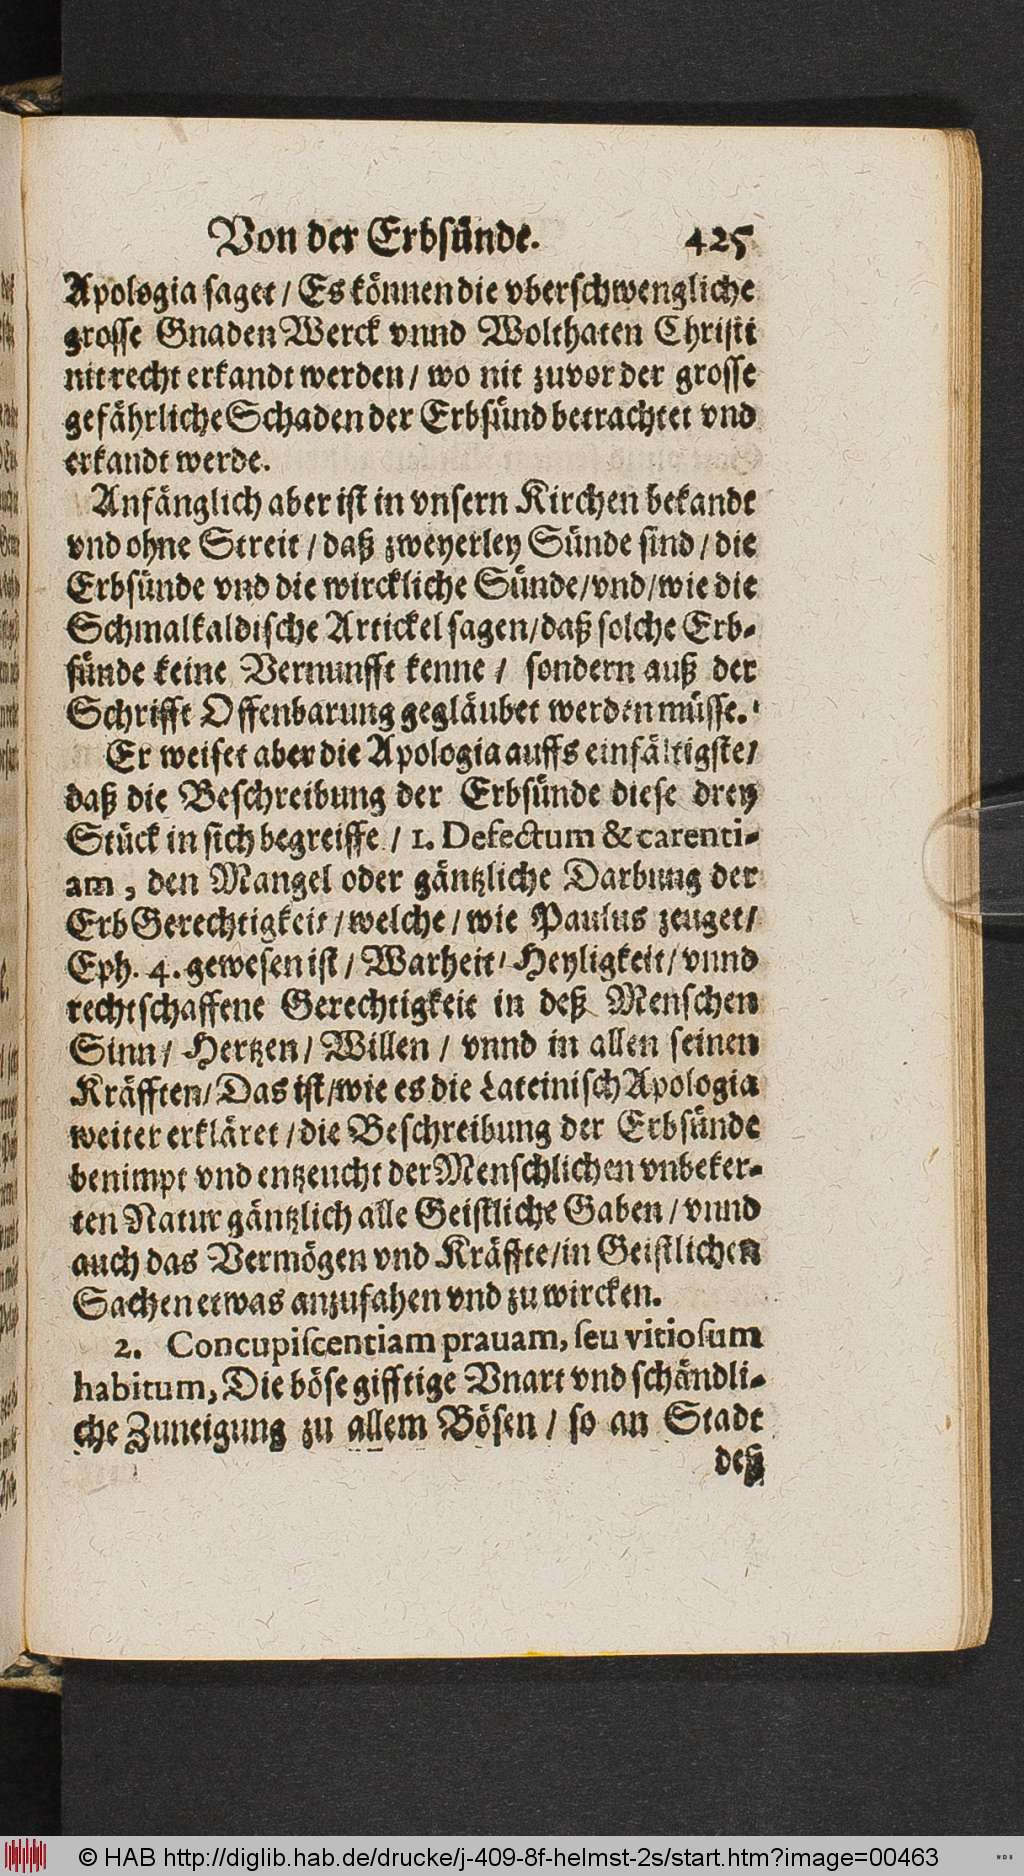 Von der Erbsünde. 425
Apologia saget / Es können die vberschwengliche
grosse Gnaden Werck vnnd Wolthaten Christi
nit recht erkandt werden / wo nit zuvor der grosse
gefährliche Schaden der Erbsünd betrachtet vnd
erkandt werde.
Anfänglich aber ist in vnsern Kirchen bekandt
vnd ohne Streit / daß zweyerley Sünde sind / die
Erbsünde vnd die wirckliche Sünde / vnd / wie die
Schmalkaldische Artickel sagen / daß solche Erb-
sünde keine Vernunfft kenne / sondern auß der
Schrifft Offenbarung gegläubet werden müsse.
Er weiset aber die Apologia auffs einfältigste /
daß die Beschreibung der Erbsünde diese drey
Stück in sich begreiffe / 1. Defectum & carenti-
am, den Mangel oder gäntzliche Darbung der
Erb Gerechtigkeit / welche / wie Paulus zeuget /
Eph. 4. gewesen ist / Warheit / Heyligkeit / vnnd
rechtschaffene Gerechtigkeit in deß Menschen
Sinn / Hertzen / Willen / vnnd in allen seinen
Kräfften / Das ist / wie es die Lateinisch Apologia
weiter erkläret / die Beschreibung der Erbsünde
benimpt vnd entzeucht der Menschlichen vnbeker-
ten Natur gäntzlich alle Geistliche Gaben / vnnd
auch das Vermögen vnd Kräffte / in Geistlichen
Sachen etwas anzufahen vnd zu wircken.
2. Concupiscentiam pravam, seu vitiosum
habitum, Die böse gifftige Vnart vnd schändli-
che Zuneigung zu allem Bösen / so an Stadt
deß
© HAB http://diglib.hab.de/drucke/j-409-8f-helmst-2s/start.htm?image=00463